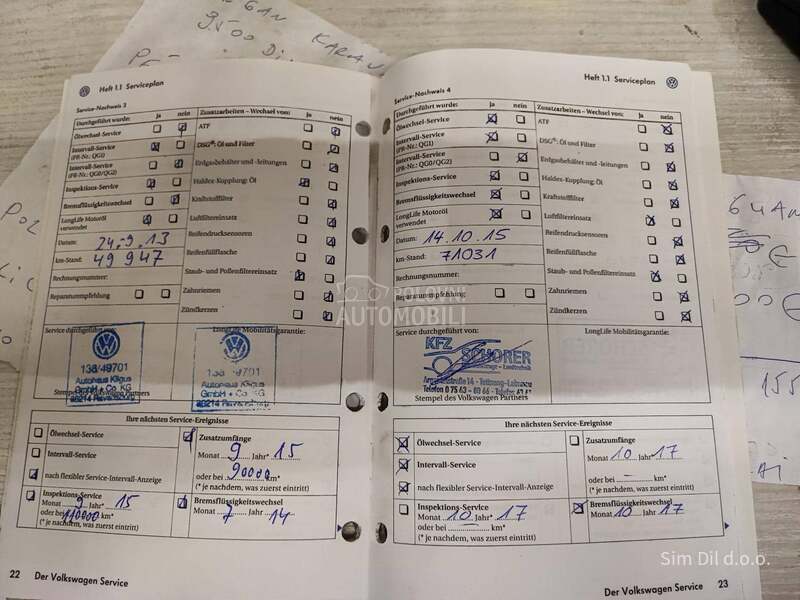 GAN KARAV
9.500 Di
Heft 1.1 Serviceplan
Service-Nachweis 3
Durchgeführt wurde: ja nein
Ölwechsel-Service
Intervall-Service
(PR-Nr.: QG1)
Intervall-Service
(PR-Nr.: QG0/QG2)
Inspektions-Service
Bremsflüssigkeitswechsel
LongLife Motoröl
verwendet
Datum: 24.9.13
km-Stand: 49 947
Rechnungsnummer:
Reparaturempfehlung
Zusatzarbeiten – Wechsel von: ja nein
ATF
DSG®: Öl und Filter
Erdgasbehälter und -leitungen
Haldex-Kupplung: Öl
Kraftstofffilter
Luftfiltereinsatz
Reifendrucksensoren
Reifenfüllflasche
Staub- und Pollenfiltereinsatz
Zahnriemen
Zündkerzen
Service durchgeführt von:
LongLife Mobilitätsgarantie:
136/49701
Autohaus Kligus
GmbH + Co. KG
88214 Ravensburg
Stempel des Volkswagen Partners
Ihre nächsten Service-Ereignisse
Ölwechsel-Service
Intervall-Service
nach flexibler Service-Intervall-Anzeige
Inspektions-Service
Monat 9 Jahr* 15
oder bei 110000 km*
(* je nachdem, was zuerst eintritt)
Zusatzumfänge
Monat 9 Jahr* 15
oder bei 90000 km*
(* je nachdem, was zuerst eintritt)
Bremsflüssigkeitswechsel
Monat 7 Jahr 14
22 Der Volkswagen Service
Heft 1.1 Serviceplan
Service-Nachweis 4
Durchgeführt wurde: ja nein
Ölwechsel-Service
Intervall-Service
(PR-Nr.: QG1)
Intervall-Service
(PR-Nr.: QG0/QG2)
Inspektions-Service
Bremsflüssigkeitswechsel
LongLife Motoröl
verwendet
Datum: 14.10.15
km-Stand: 71031
Rechnungsnummer:
Reparaturempfehlung
Zusatzarbeiten – Wechsel von: ja nein
ATF
DSG®: Öl und Filter
Erdgasbehälter und -leitungen
Haldex-Kupplung: Öl
Kraftstofffilter
Luftfiltereinsatz
Reifendrucksensoren
Reifenfüllflasche
Staub- und Pollenfiltereinsatz
Zahnriemen
Zündkerzen
Service durchgeführt von:
LongLife Mobilitätsgarantie:
KFZ SCHORER
Stempel des Volkswagen Partners
Ihre nächsten Service-Ereignisse
Ölwechsel-Service
Intervall-Service
nach flexibler Service-Intervall-Anzeige
Inspektions-Service
Monat 10 Jahr* 17
oder bei — km*
(* je nachdem, was zuerst eintritt)
Zusatzumfänge
Monat 10 Jahr* 17
oder bei — km*
(* je nachdem, was zuerst eintritt)
Bremsflüssigkeitswechsel
Monat 10 Jahr 17
Der Volkswagen Service 23
POLOVNI
AUTOMOBILI
Sim Dil d.o.o.